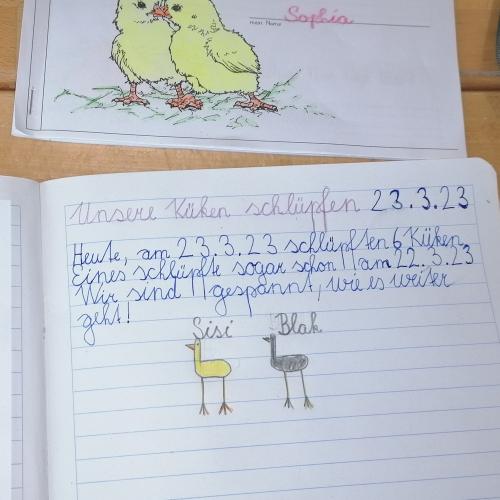 mein Name
Sophia
Unsere Küken schlüpfen 23.3.23
Heute, am 23.3.23 schlüpften 6 Küken.
Eines schlüpfte sogar schon am 22.3.23
Wir sind gespannt, wie es weiter
geht!
Sisi Blak